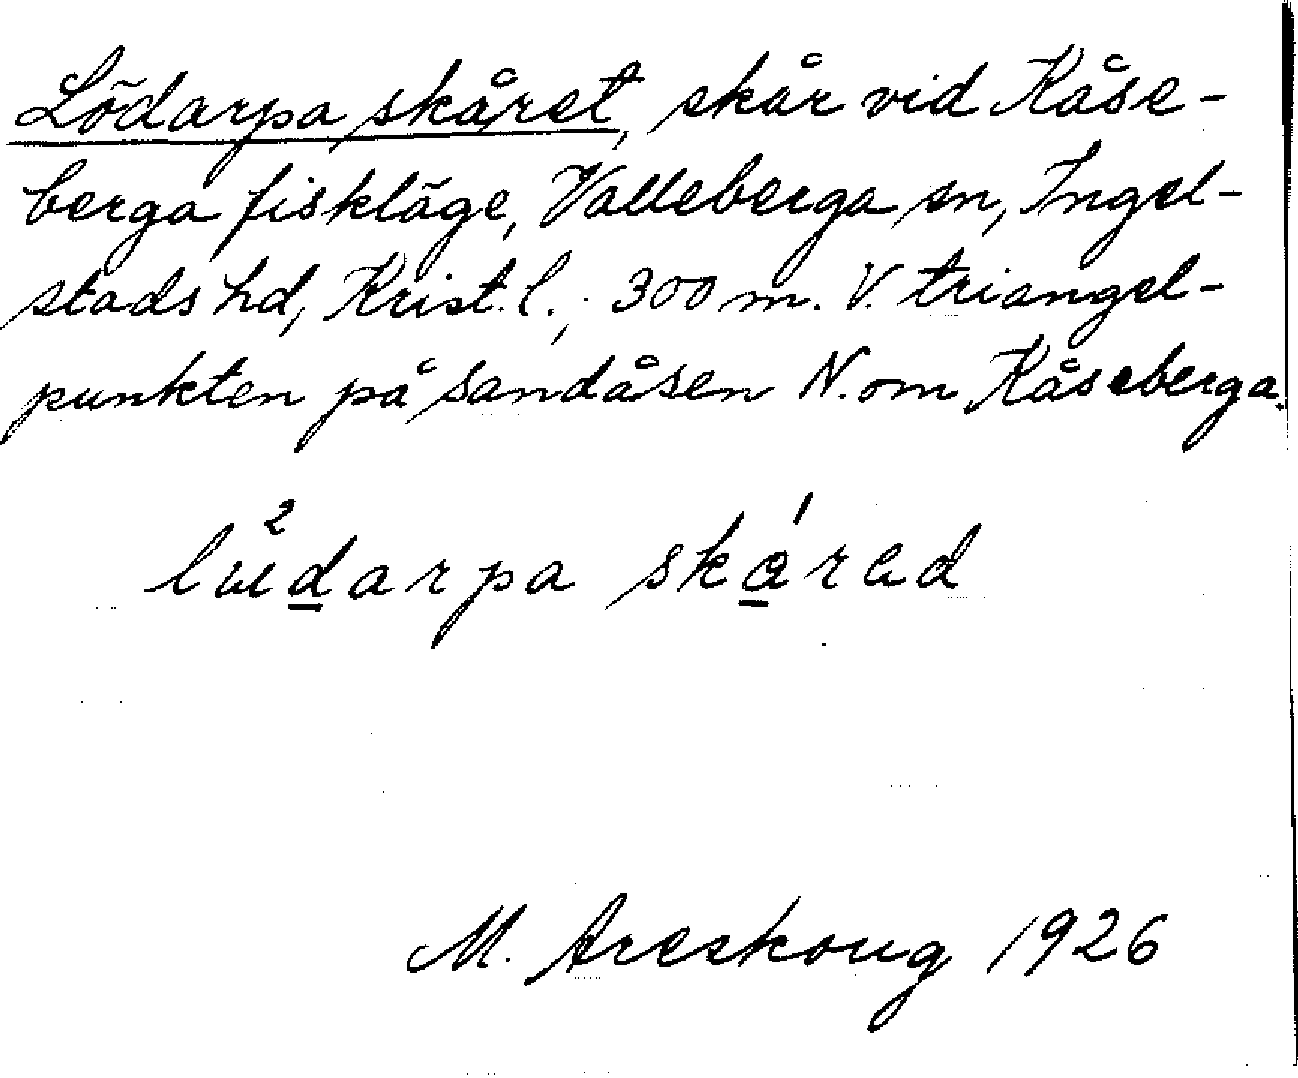 Lödarpa skåret, skår vid Kåse-
berga fiskläge, Valleberga sn, Ingel-
stads hd, Krist. l.; 300 m. V. triangel-
punkten på sandåsen N. om Kåseberga.
skårad
M. Areskoug 1926